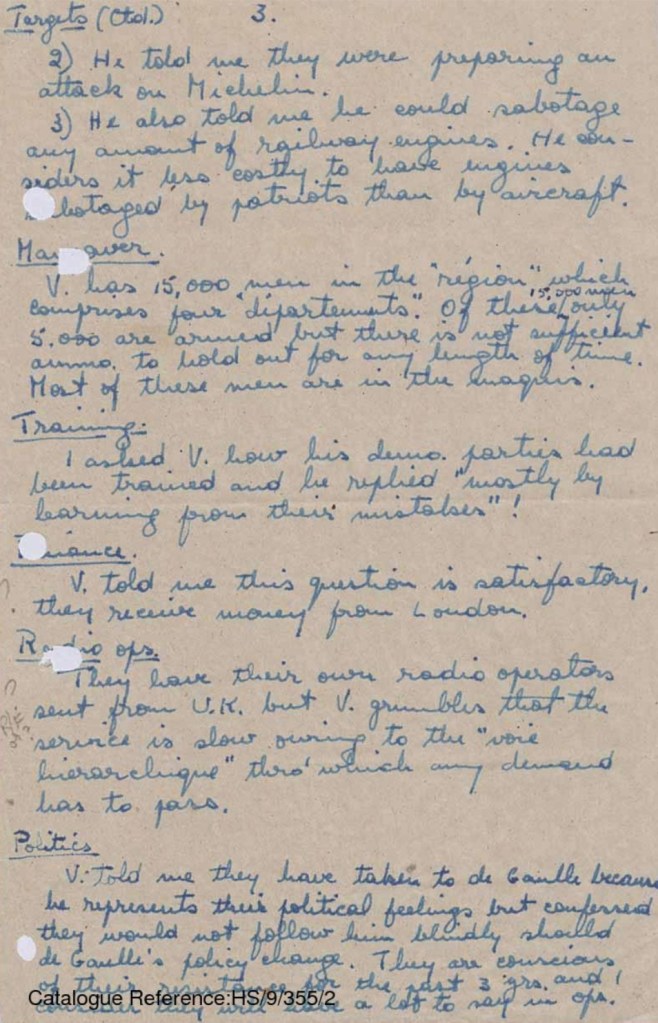 Targets (Ctd.) 3.
2) He told me they were preparing an
attack on Michelin.
3) He also told me he could sabotage
any amount of railway engines. He con-
siders it less costly to have engines
botaged by patriots than by aircraft.
Ma power.
V. has 15,000 men in the "région" which
comprises four "départements". Of these 15,000 men only
5.000 are armed but there is not sufficient
ammo. to hold out for any length of time.
Most of these men are in the maquis.
Training.
I asked V. how his demo. parties had
been trained and he replied "mostly by
learning from their mistakes"!
inance.
V. told me this question is satisfactory,
they receive money from London.
Radio ops.
They have their own radio operators
sent from U.K. but V. grumbles that the
service is slow owing to the "voie
hierarchique" thro' which any demand
has to pass.
Politics
V. told me they have taken to de Gaulle because
he represents their political feelings but confessed
they would not follow him blindly should
de Gaulle's policy change. They are conscious
of their resistance for the past 3 yrs. and I
consider they will have a lot to say in ops.
Catalogue Reference:HS/9/355/2